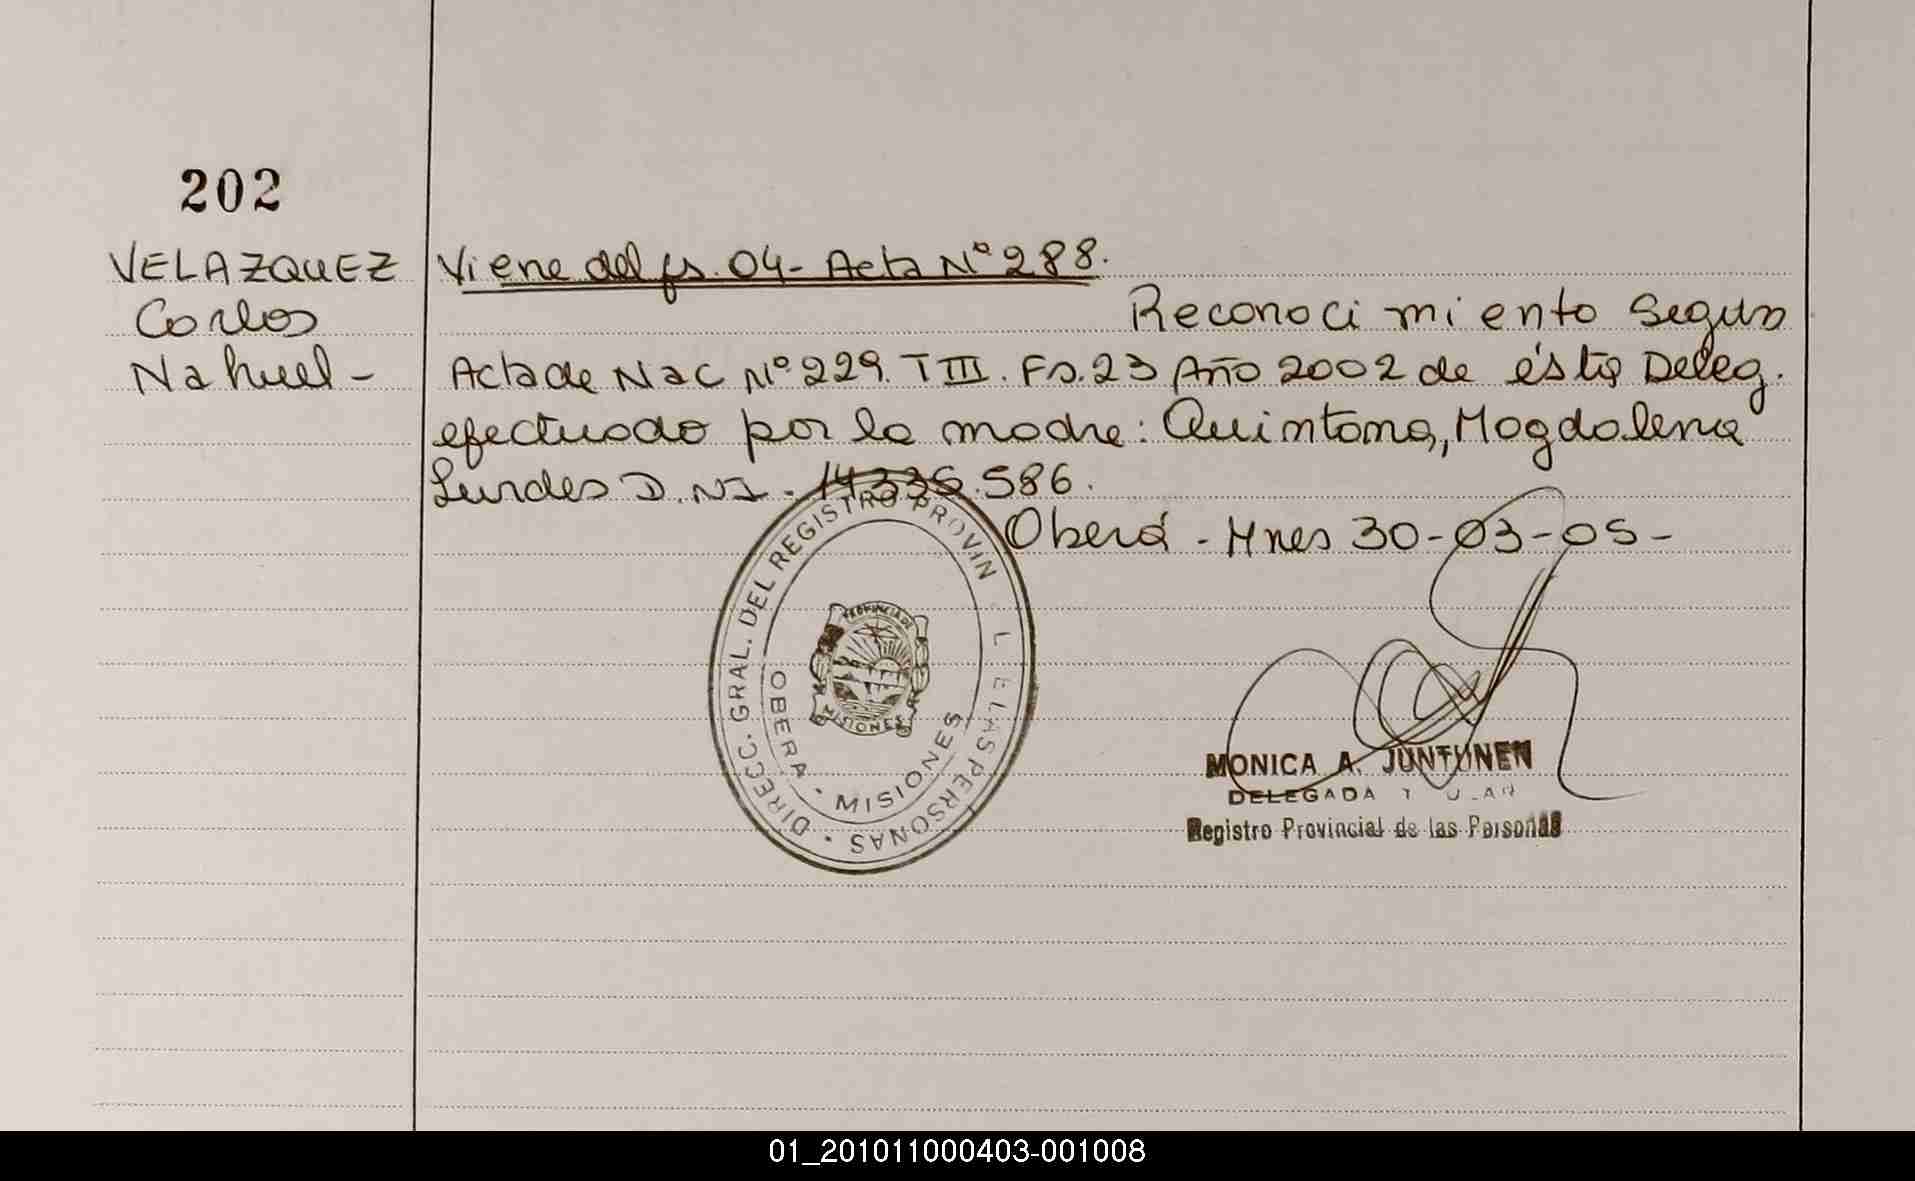 202
VELAZQUEZ
Carlos
Nahuel-
Viene del fs. 04- Acta Nº 288.
Reconocimiento Segun
Acta de Nac Nº 229. T III. Fs. 23 Año 2002 de ésta Deleg.
efectuado por la madre: Quintana, Magdalena
Lurdes D.NI. 14.335.586.
Oberá - Mnes 30-03-05-
DIRECC. GRAL. DEL REGISTRO PROVIN L E LAS PERSONAS
OBERA · MISIONES
PROVINCIA DE
MISIONES
MONICA A. JUNTUNEN
DELEGADA
Registro Provincial de las Personas
01_201011000403-001008